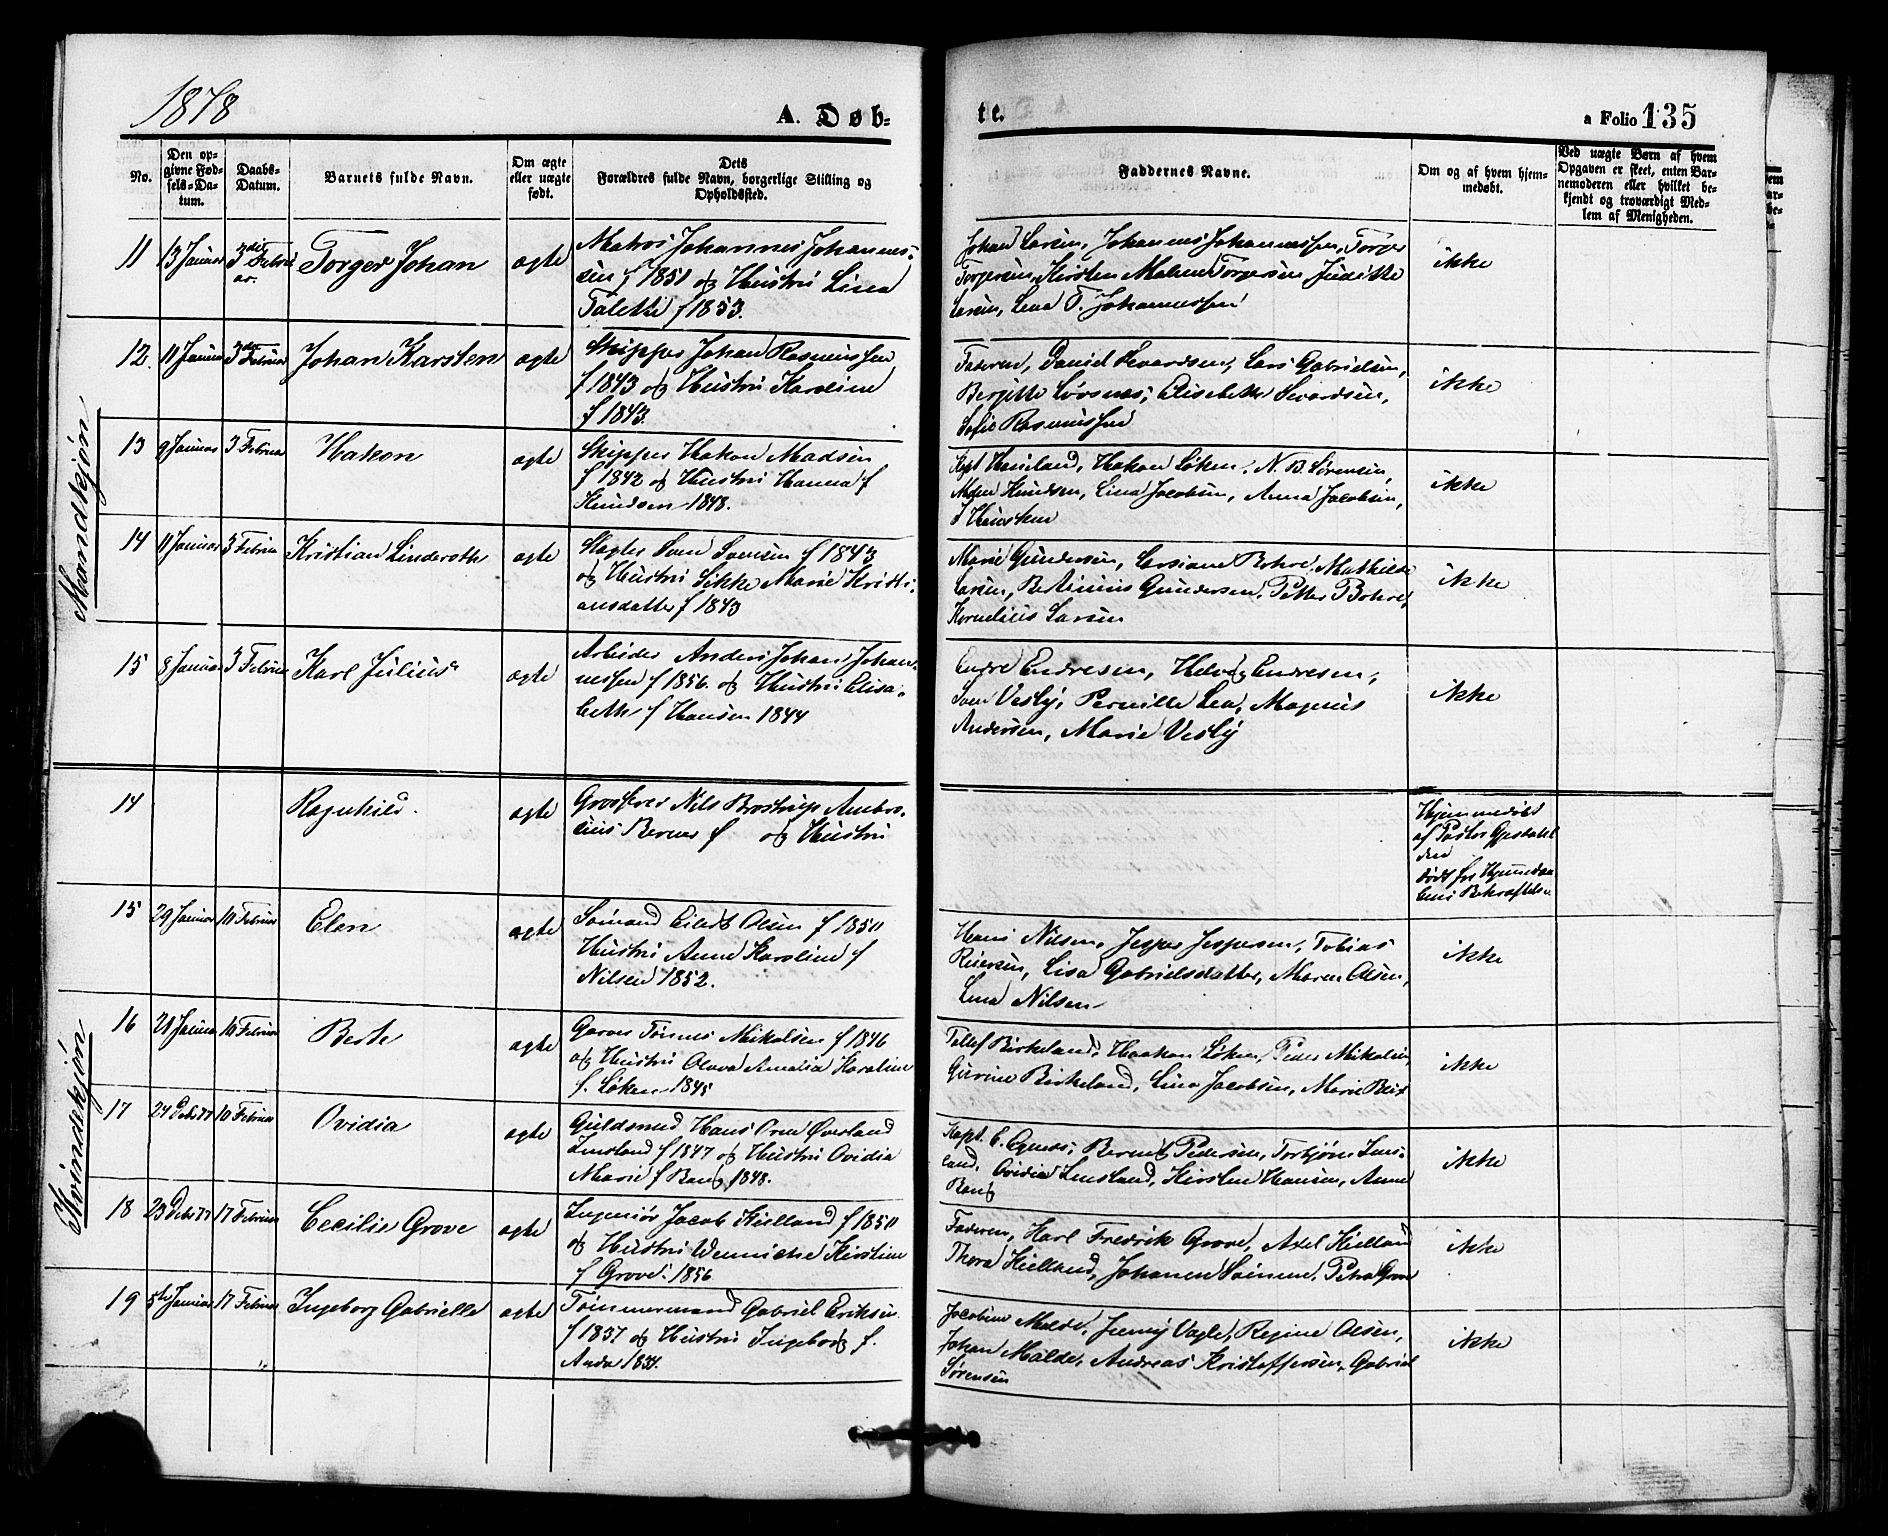 1878
A. Døb-
te.
a Folio 135
No.
Den op-
givne Fød-
sels-Da-
tum.
Daabs-
Datum.
Barnets fulde Navn.
Om ægte
eller uægte
født.
Dets
Forældres fulde Navn, borgerlige Stilling og
Opholdssted.
Faddernes Navne.
Om og af hvem hjem-
medøbt.
Ved uægte Børn af hvem
Opgaven er skeet, enten Bar-
nemoderen eller hvilket be-
kjendt og troværdigt Med-
lem af Menigheden.
Mandkjøn
11 13 Januar 3die Februar Torger Johan ægte
Matros Johannes Johannes-
sen f 1851 og Hustru Lina
Talette f 1853.
Johan Larsen, Johannes Johannessen, Torger
Torgersen, Kirsten Malene Torgersen Juditte
Larsen, Lena T. Johannessen
ikke
12. 11 Januar 3die Februar Johan Karsten ægte
Skipper Johan Rasmussen
f 1843 og Hustru Karoline
f 1843.
Faderen, Daniel Sivardsen, Lars Gabrielsen,
Bergitte Lovsnes, Elisabeth Sivardsen,
Sofie Rasmussen
ikke
13 9 Januar 3 Februar Hakon ægte
Skipper Hakon Madsen
f 1842 og Hustru Hanna f
Knudsen 1848.
Kapt Haueland, Hakon Løken, N. B. Sørensen,
Knudsen, Lina Jacobsen, Anna Jacobsen,
ikke
14 11 Januar 3 Februar Kristian Linderoth ægte
Slagter Sven Svensen f 1843
og Hustru Sikke Marie Kristi-
ansdatter f 1843
Marie Gundersen, Bohre, Mathilde
Larsen, Bertinius Gundersen, Petter Bohre,
Kornelius Larsen
ikke
15 8 Januar 3 Februar Karl Julius ægte
Arbeider Anders Johan Johan-
nessen f 1856. og Hustru Elisa-
beth f Hansen 1844
Endre Endresen, Helvig Endresen,
Sven Vesby, Pernille Lea, Magnus
Andersen, Marie Vesby
ikke
Kvindekjøn
14 Ragnhild. ægte
Grosserer Nils Brostrup Ambro-
sius Berner f og Hustru
Hjemmedøbt
af Pastor Gjesdahl
den
død før Hjemmedaa-
bens Bekræftelse
15 29 Januar 10 Februar Elen ægte
Sømand Eilert Olsen f 1850
Hustru Anne Karoline f
Nilsen 1852.
Hans Nilsen, Jesper Jespersen, Tobias
Reiersen, Lisa Gabrielsdatter, Maren Olsen,
Lina Nilsen
ikke
16 28 Januar 10 Februar Berte ægte
Garver Tønnes Mikalsen f 1846
og Hustru Olava Amalia Karoline
f. Løken 1845
Tellef Birkeland, Haakon Løken, Peder Mikalsen,
Gurine Birkeland, Lina Jacobsen, Marie
ikke
17 24 Debr 77 10 Februar Ovidia ægte
Guldsmed Hans Oren Øverland
Imsland f 1847 og Hustru Ovidia
Marie f Bang 1848.
Kapt. E. Egenes, Bernt Pedersen, Torbjørn Ims-
land, Ovidia Imsland, Kirsten Hansen, Anne
Bang
ikke
18 23 Debr 77 17 Februar Cecilie Grove ægte
Ingeniør Jacob Kielland f 1850
og Hustru Wenniche Kirstine
f Grove. 1856
Faderen, Karl Fredrik Grove, Axel Kielland
Thora Kielland, Johanne Sømme, Petra Grove
ikke
19 5te Januar 17 Februar Ingeborg Gabrielle ægte
Tømmermand Gabriel Eriksen
f 1857 og Hustru Ingeborg f.
Anda 1851.
Jacobine Malde, Jenny Vagle, Regine Olsen,
Johan Malde, Andreas Kristoffersen, Gabriel
Sørensen
ikke